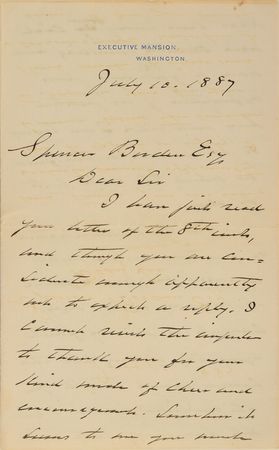 EXECUTIVE MANSION,
WASHINGTON.
July 10. 1887
Spencer Borden Esq
Dear Sir
I have just read
your letter of the 8th inst.
and though you are con-
siderate enough apparently
not to expect a reply, I
cannot resist the impulse
to thank you for your
kind words of cheer and
encouragement. Sometimes it
seems to me